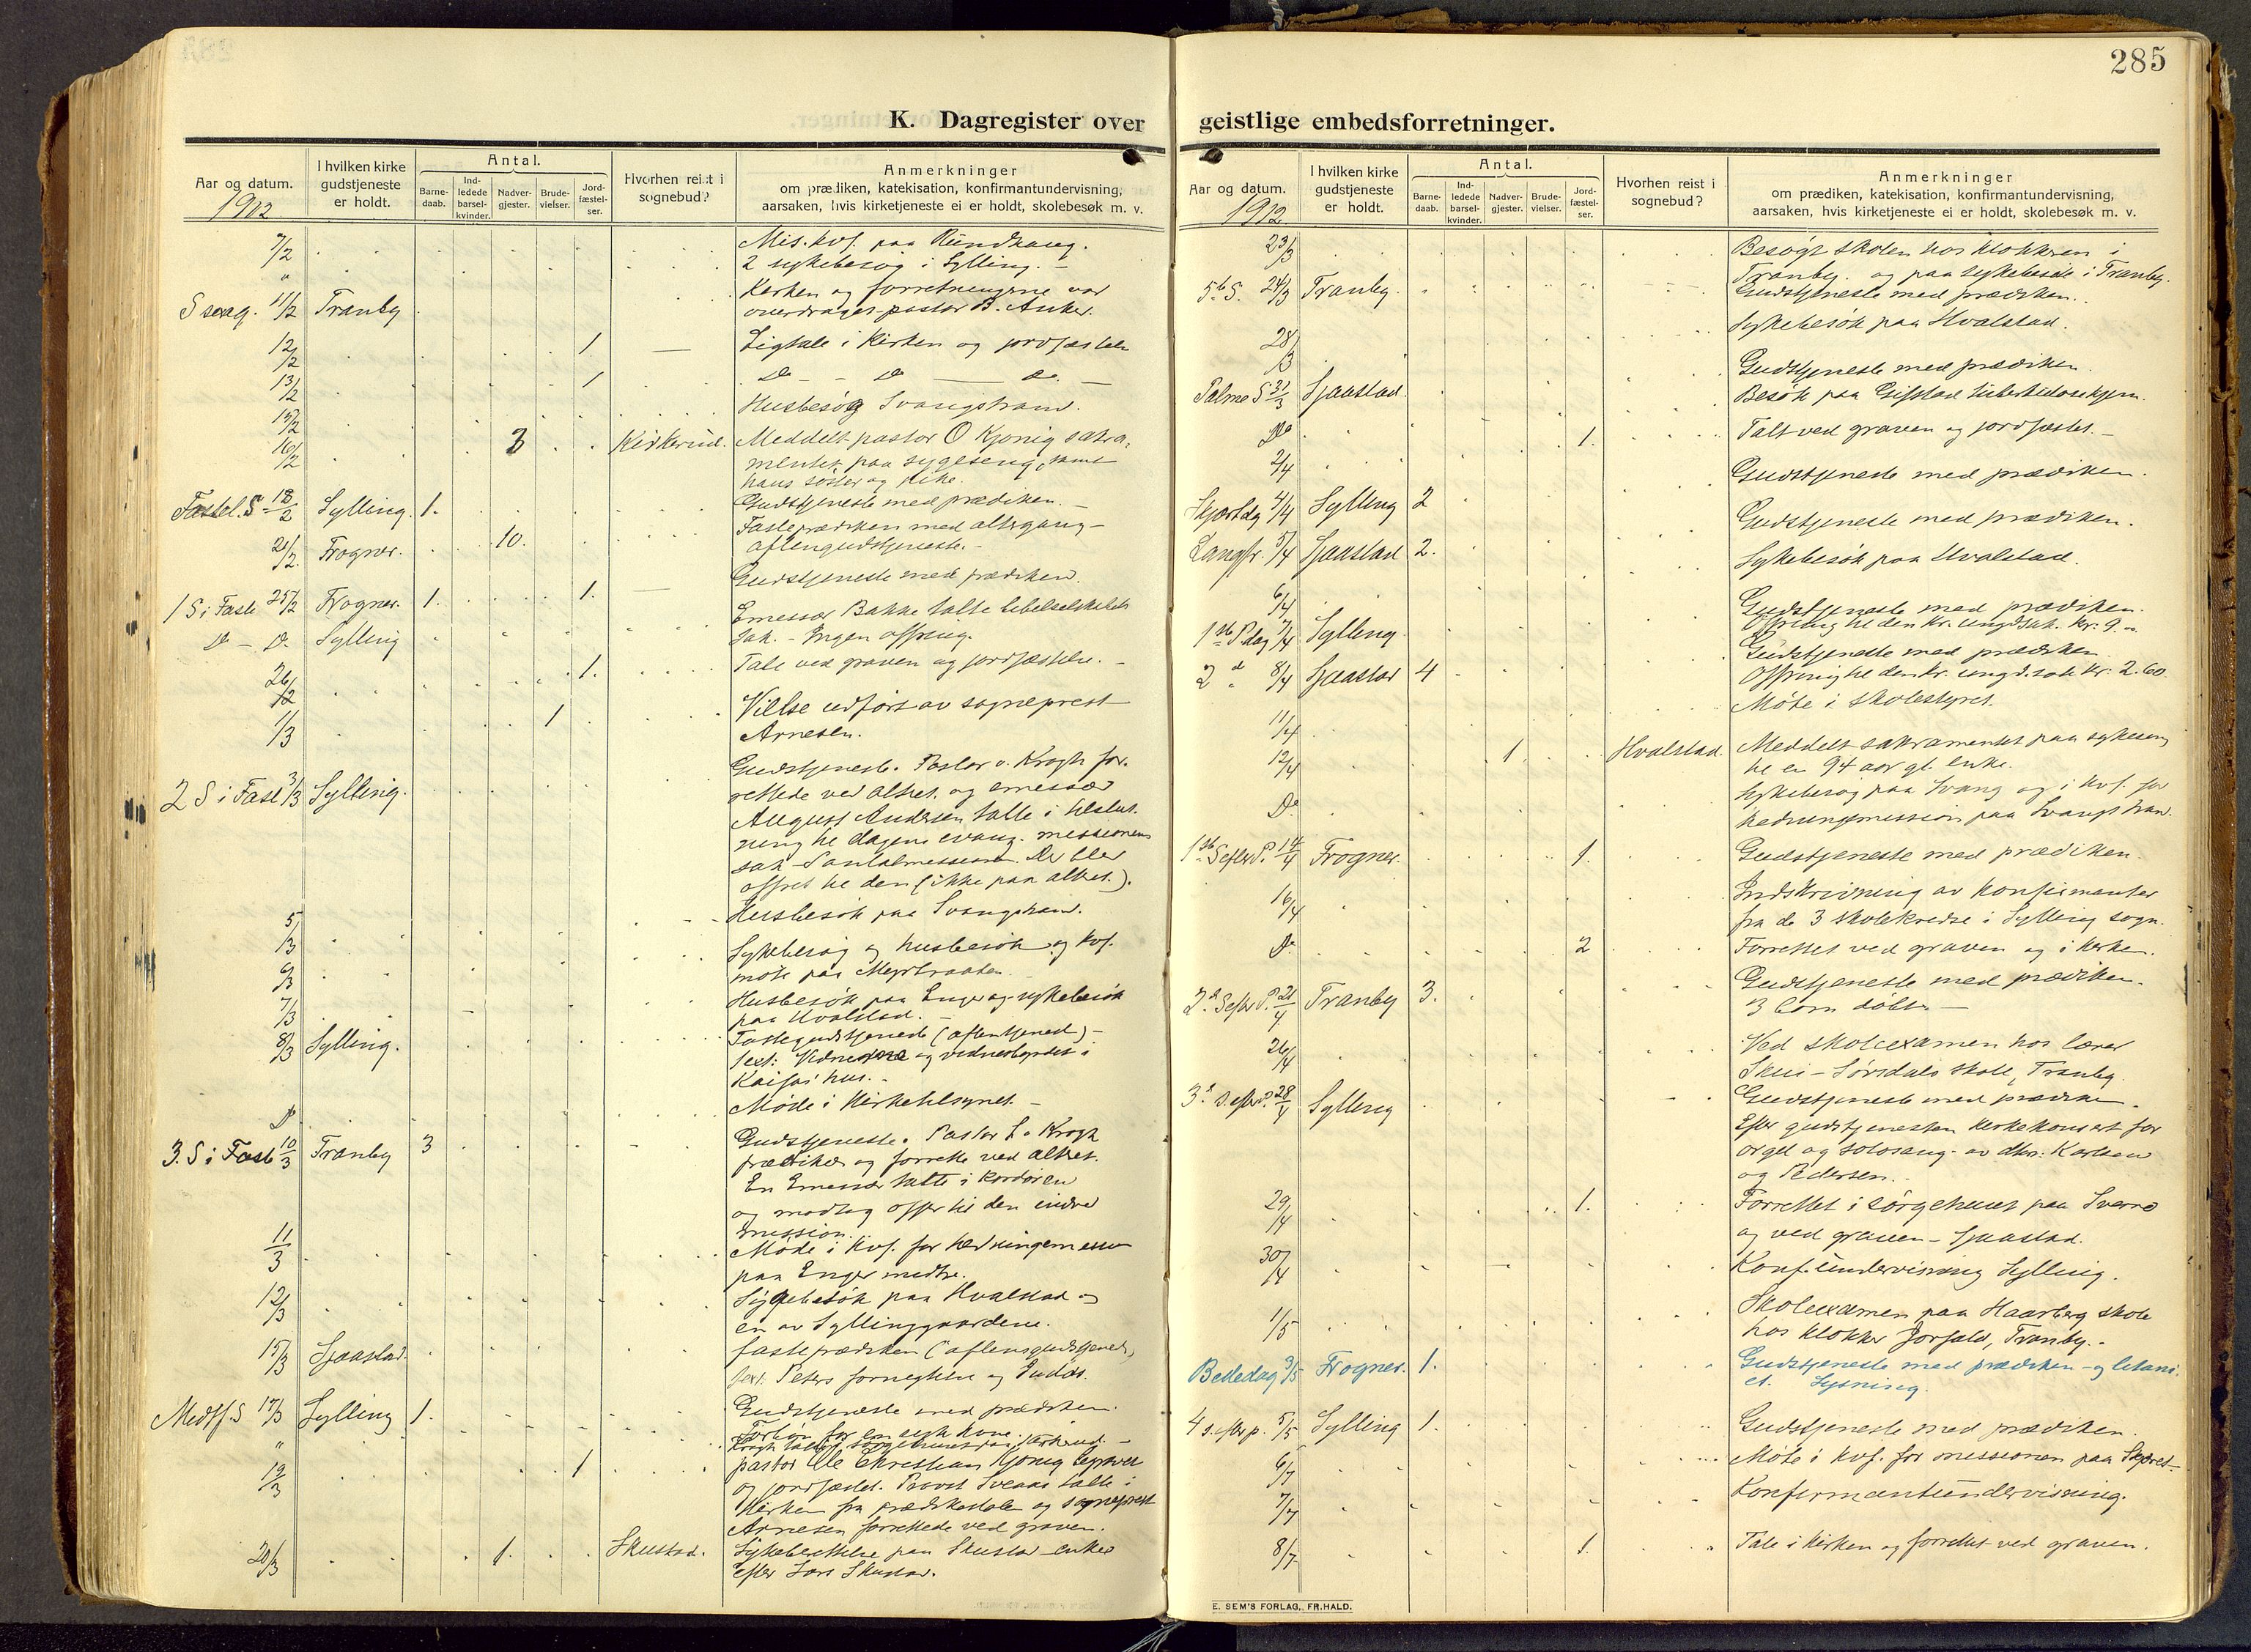 285
K. Dagregister over geistlige embedsforretninger.
Aar og datum.
I hvilken kirke gudstjeneste er holdt.
Antal.
Barne-daab.
Ind-ledede barsel-kvinder.
Nadver-gjester.
Brude-vielser.
Jord-fæstel-ser.
Hvorhen reist i sognebud?
Anmerkninger
om prædiken, katekisation, konfirmantundervisning,
aarsaken, hvis kirketjeneste ei er holdt, skolebesøk m. v.
1912
2 sykebesøg i Sylling. –
Kirken og forretningerne var
11/2 Tranby overdraget pastor B. Anker.
12/2 1 — Ligtale i kirken og jordfæstelse
13/2 1 Do – – Do — Do. —
Husbesøg Svangstrand.
16/2 Kirkerud. Meddelt pastor O Kjønig sakra-
mentet paa sygeseng, samt
hans søster og pike.
Fastel. S 18/2 Sylling. 1. Gudstjeneste med prædiken. –
21/2 Frogner. 10. Fasteprædiken med altergang –
aftengudstjeneste. –
1 S i Faste 25/2 Frogner. 1. 1. — Gudstjeneste med prædiken.
Do – Do Sylling Emissær Bakke talte bibelselskabets
sak. – Ingen offring.
26/2 1. Tale ved graven og jordfæstelse. –
1/3 1 Vielse udført av sogneprest
Arnesen.
2 S i Faste 3/3 Sylling. Gudstjeneste. Pastor v. Krogh for-
rettede ved altret. og emissær
August Andersen talte i tilslut-
ning til dagens evang. missionens
sak – Santalmissionen. Der blev
offret til den (ikke paa altret.).
5/3 Husbesøk paa Svangstrand.
6/3 Sykebesøg og husbesøk og kvf.
møte paa Myrbraaten.
7/3 Husbesøk paa Enger og sykebesøk
paa Hvalstad. –
8/3 Sylling. Fastegudstjeneste (aftentjeneste) –
Text: Vidnerne og vidnesbyrdet i
Kaifas' hus. –
Do Møde i kirketilsynet. –
3. S i Faste 10/3 Tranby 3 Gudstjeneste. Pastor v. Krogh
prædiker og forrette ved altret.
En Emissær talte i kordøren
og modtog offer til den indre
mission.
11/3 Møde i kvf. for hedningemission
paa Enger medtre.
12/3 Sygebesøk paa Hvalstad og
en av Syllinggaardene.
15/3 Sjaastad. fasteprædiken (aftengudstjeneste)
text. Peters fornegtelse og Judas.
Midtf. S 17/3 Sylling 1. Gudstjeneste med prædiken.
Forbøn for en syk kone.
19/3 1 pastor Ole Christian Kjønig begravet
og jordfæstet. Provst Sveaas talte i
Kirken fra prædikestolen og sogneprest
Arnesen forrettede ved graven.
20/3 1. Skustad. Sykeberettelse paa Skustad – enke
efter Lars Skustad.
1912
23/3 Besøgt skolen hos klokkeren i
Tranby. og paa sykebesøk i Tranby.
5te S. 24/3 Tranby. Gudstjeneste med prædiken.
28/3 Sykebesøk paa Hvalstad.
Palme S 31/3 Sjaastad. Gudstjeneste med prædiken.
Do Besøk paa Gifstad tuberkulosehjem.
2/4 1. Talt ved graven og jordfæstet. –
Skjærtdg 4/4 Sylling 2 Gudstjeneste med prædiken.
Langfr. 5/4 Sjaastad 2. Gudstjeneste med prædiken.
6/4 Sykebesøk paa Hvalstad.
1ste Pdag 7/4 Sylling Gudstjeneste med prædiken.
Offring til den kr. ungd.sak. kr: 9. –
2d " 8/4 Sjaastad 4 Gudstjeneste med prædiken
Offring til den kr. ungd. sak kr: 2.60.
11/4 Møte i skolestyret.
12/4 1 Hvalstad. Meddelt sakramentet paa sykeseng
til en 94 aar gl. enke.
Do Sykebesøg paa Svang og i kvf. for
hedningemission paa Svangstran.
1ste S efter P. 14/4 Frogner. 1. Gudstjeneste med prædiken.
16/4 Indskrivning av konfirmanter
fra de 3 skolekredse i Sylling sogn.
Do 2 Forrettet ved graven og i kirken.
2d S efter P 21/4 Tranby 3. Gudstjeneste med prædiken.
3 børn døbt. —
26/4 Ved skoleexamen hos lærer
Skui – Sørsdals skole, Tranby.
3d S. efter P. 28/4 Sylling Gudstjeneste med prædiken.
Efter gudstjenesten kirkekonsert for
orgel og solosang. av dhrr. Karlsen
og Pedersen. –
29/4 1. Forrettet i sørgehuset paa Sverre
og ved graven – Sjaastad.
30/4 Konf. undervisning Sylling.
1/5 Skoleexamen paa Haarberg skole
hos klokker Jorfald, Tranby. –
Bededag 3/5 Frogner. 1. Gudstjeneste med prædiken – og litani.
et. Lysning.
4 s. efter p. 5/5 Sylling 1. Gudstjeneste med prædiken.
6/7 Møte i kvf. for missionen paa
7/7 Konfirmantundervisning.
8/7 1. Tale i kirken og forrettet ved graven.
E. SEM'S FORLAG, FR.HALD.